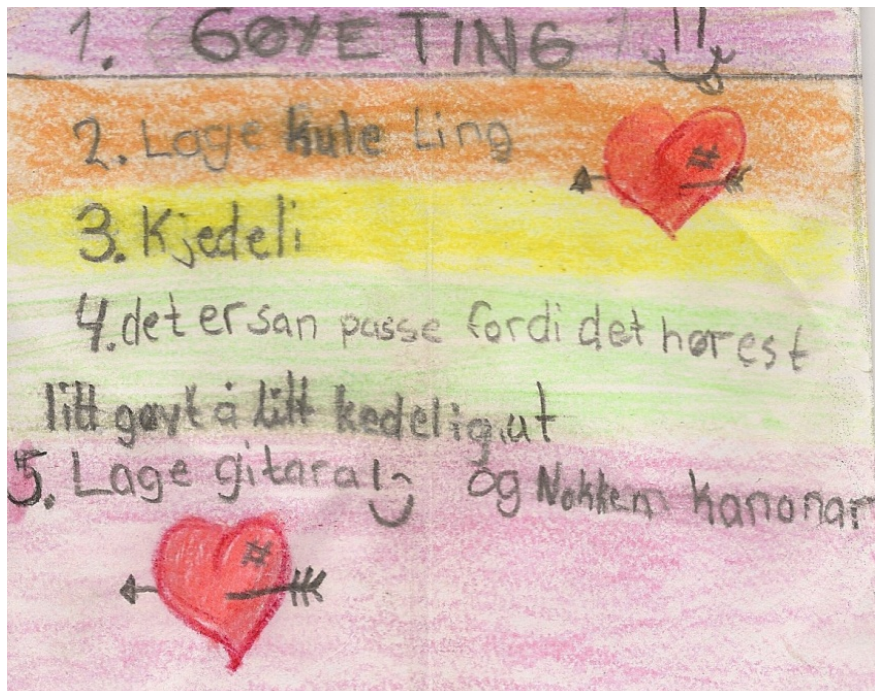 1. GØYE TING !!
2. Lage kule ting
3. Kjedeli
4. det er san passe fordi det hørest
litt gøyt å litt kedelig ut
5. Lage gitarar og Nokken kanonar